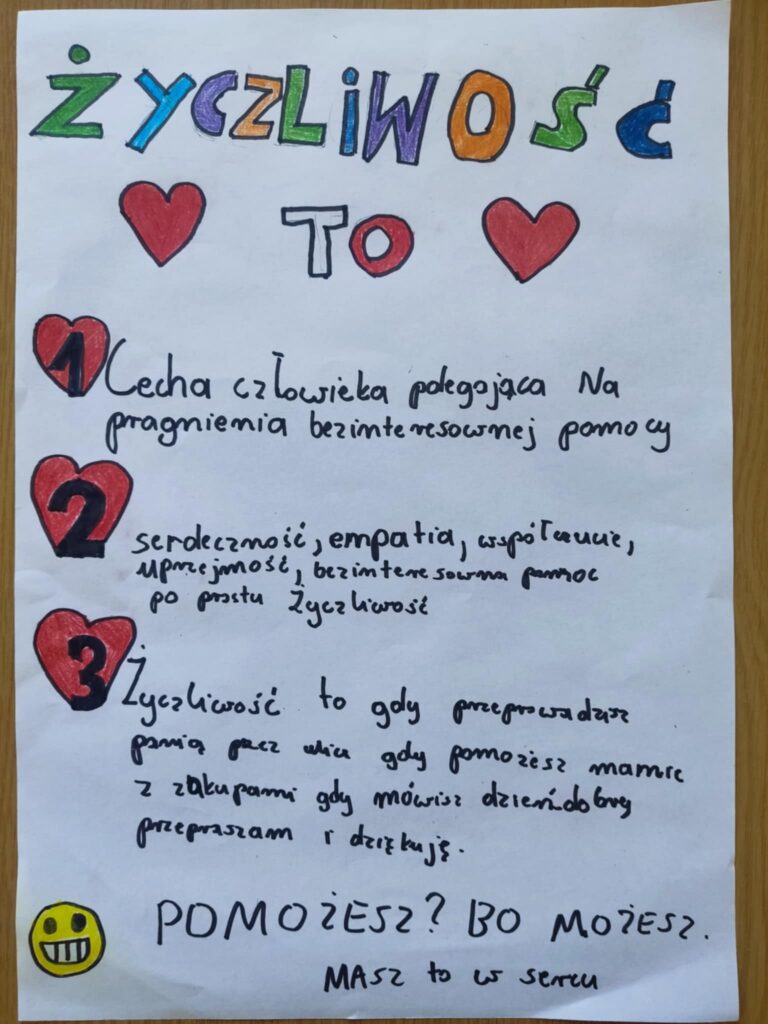 ŻYCZLiWOŚĆ
TO
1 Cecha człowieka polegająca Na
pragnienia bezinteresownej pomocy
2 serdeczność, empatia, współczucie,
uprzejmość, bezinteresowna pomoc
po prostu Życzliwość
3 Życzliwość to gdy przeprowadzisz
panią przez ulice gdy pomożesz mamie
z zakupami gdy mówisz dzień.dobry
przepraszam i dziękuję.
POMOŻESZ? BO MOŻESZ.
MASZ to w sercu